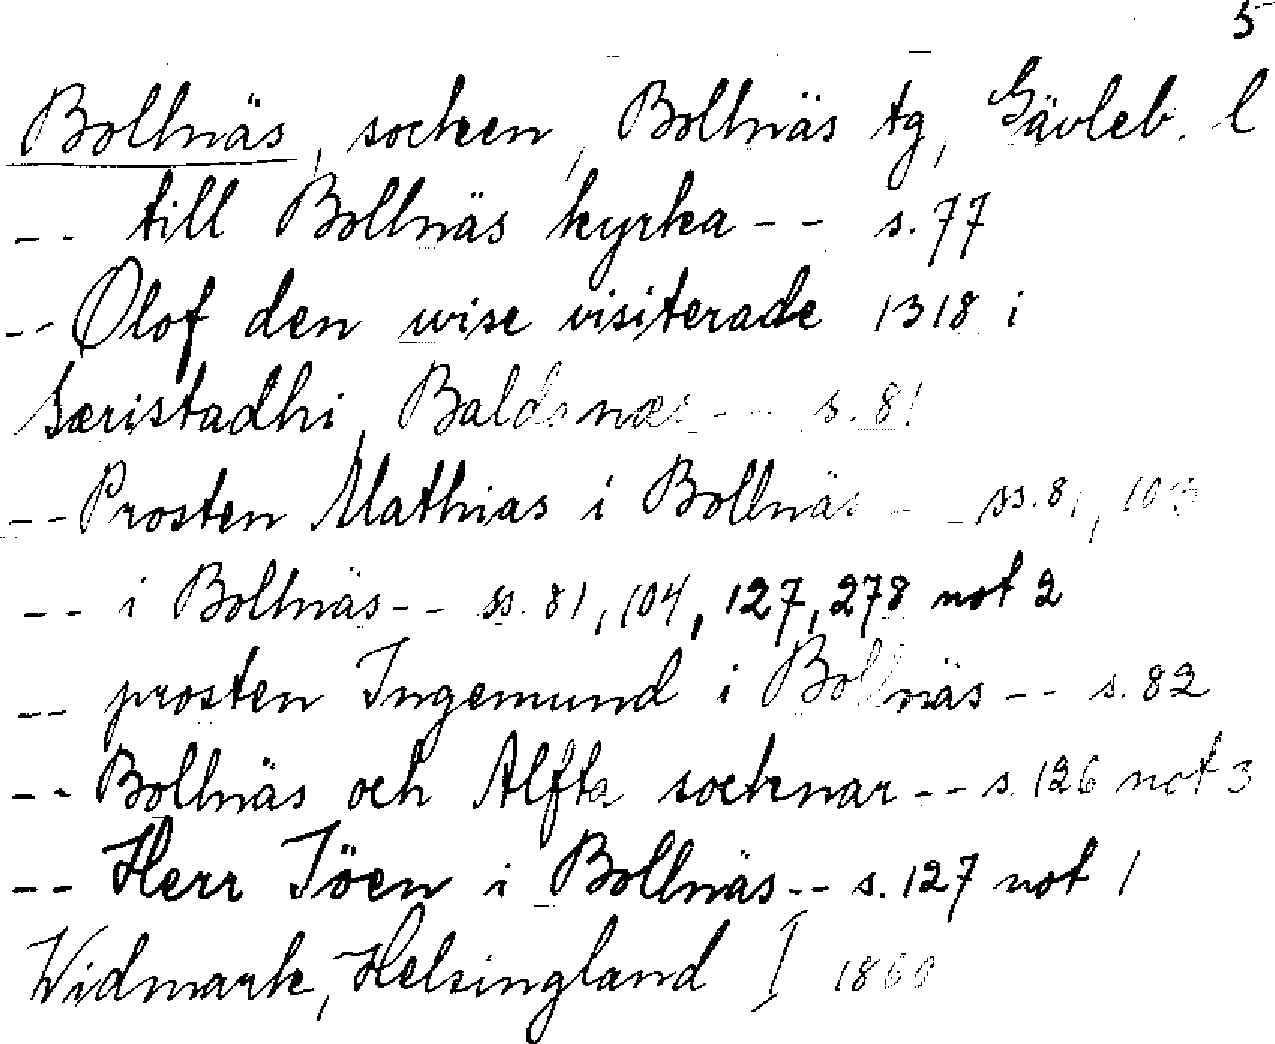 5
Bollnäs, socken, Bollnäs tg, Gävleb. l
-- till Bollnäs kyrka -- s. 77
-- Olof den wise visiterade 1318 i
Særistadhi, Baldsnæs -- s. 81
-- Prosten Mathias i Bollnäs -- ss. 81, 103
-- i Bollnäs -- ss. 81, 104, 127, 278 not 2
-- prosten Ingemund i Bollnäs -- s. 82
-- Bollnäs och Alfta socknar -- s. 126 not 3
-- Herr Jöen i Bollnäs -- s. 127 not 1
Widmark, Helsingland I 1860